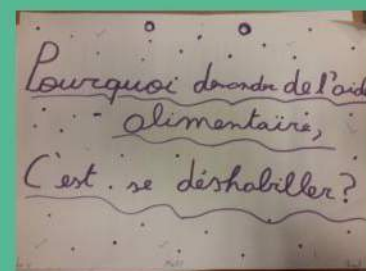 Pourquoi demander de l'aide
alimentaire,
C'est se déshabiller ?